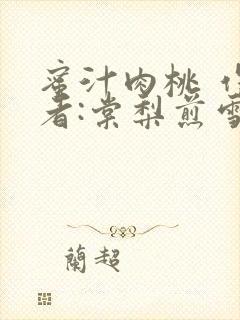 蜜汁肉桃 作
者:棠梨煎雪
蘭超